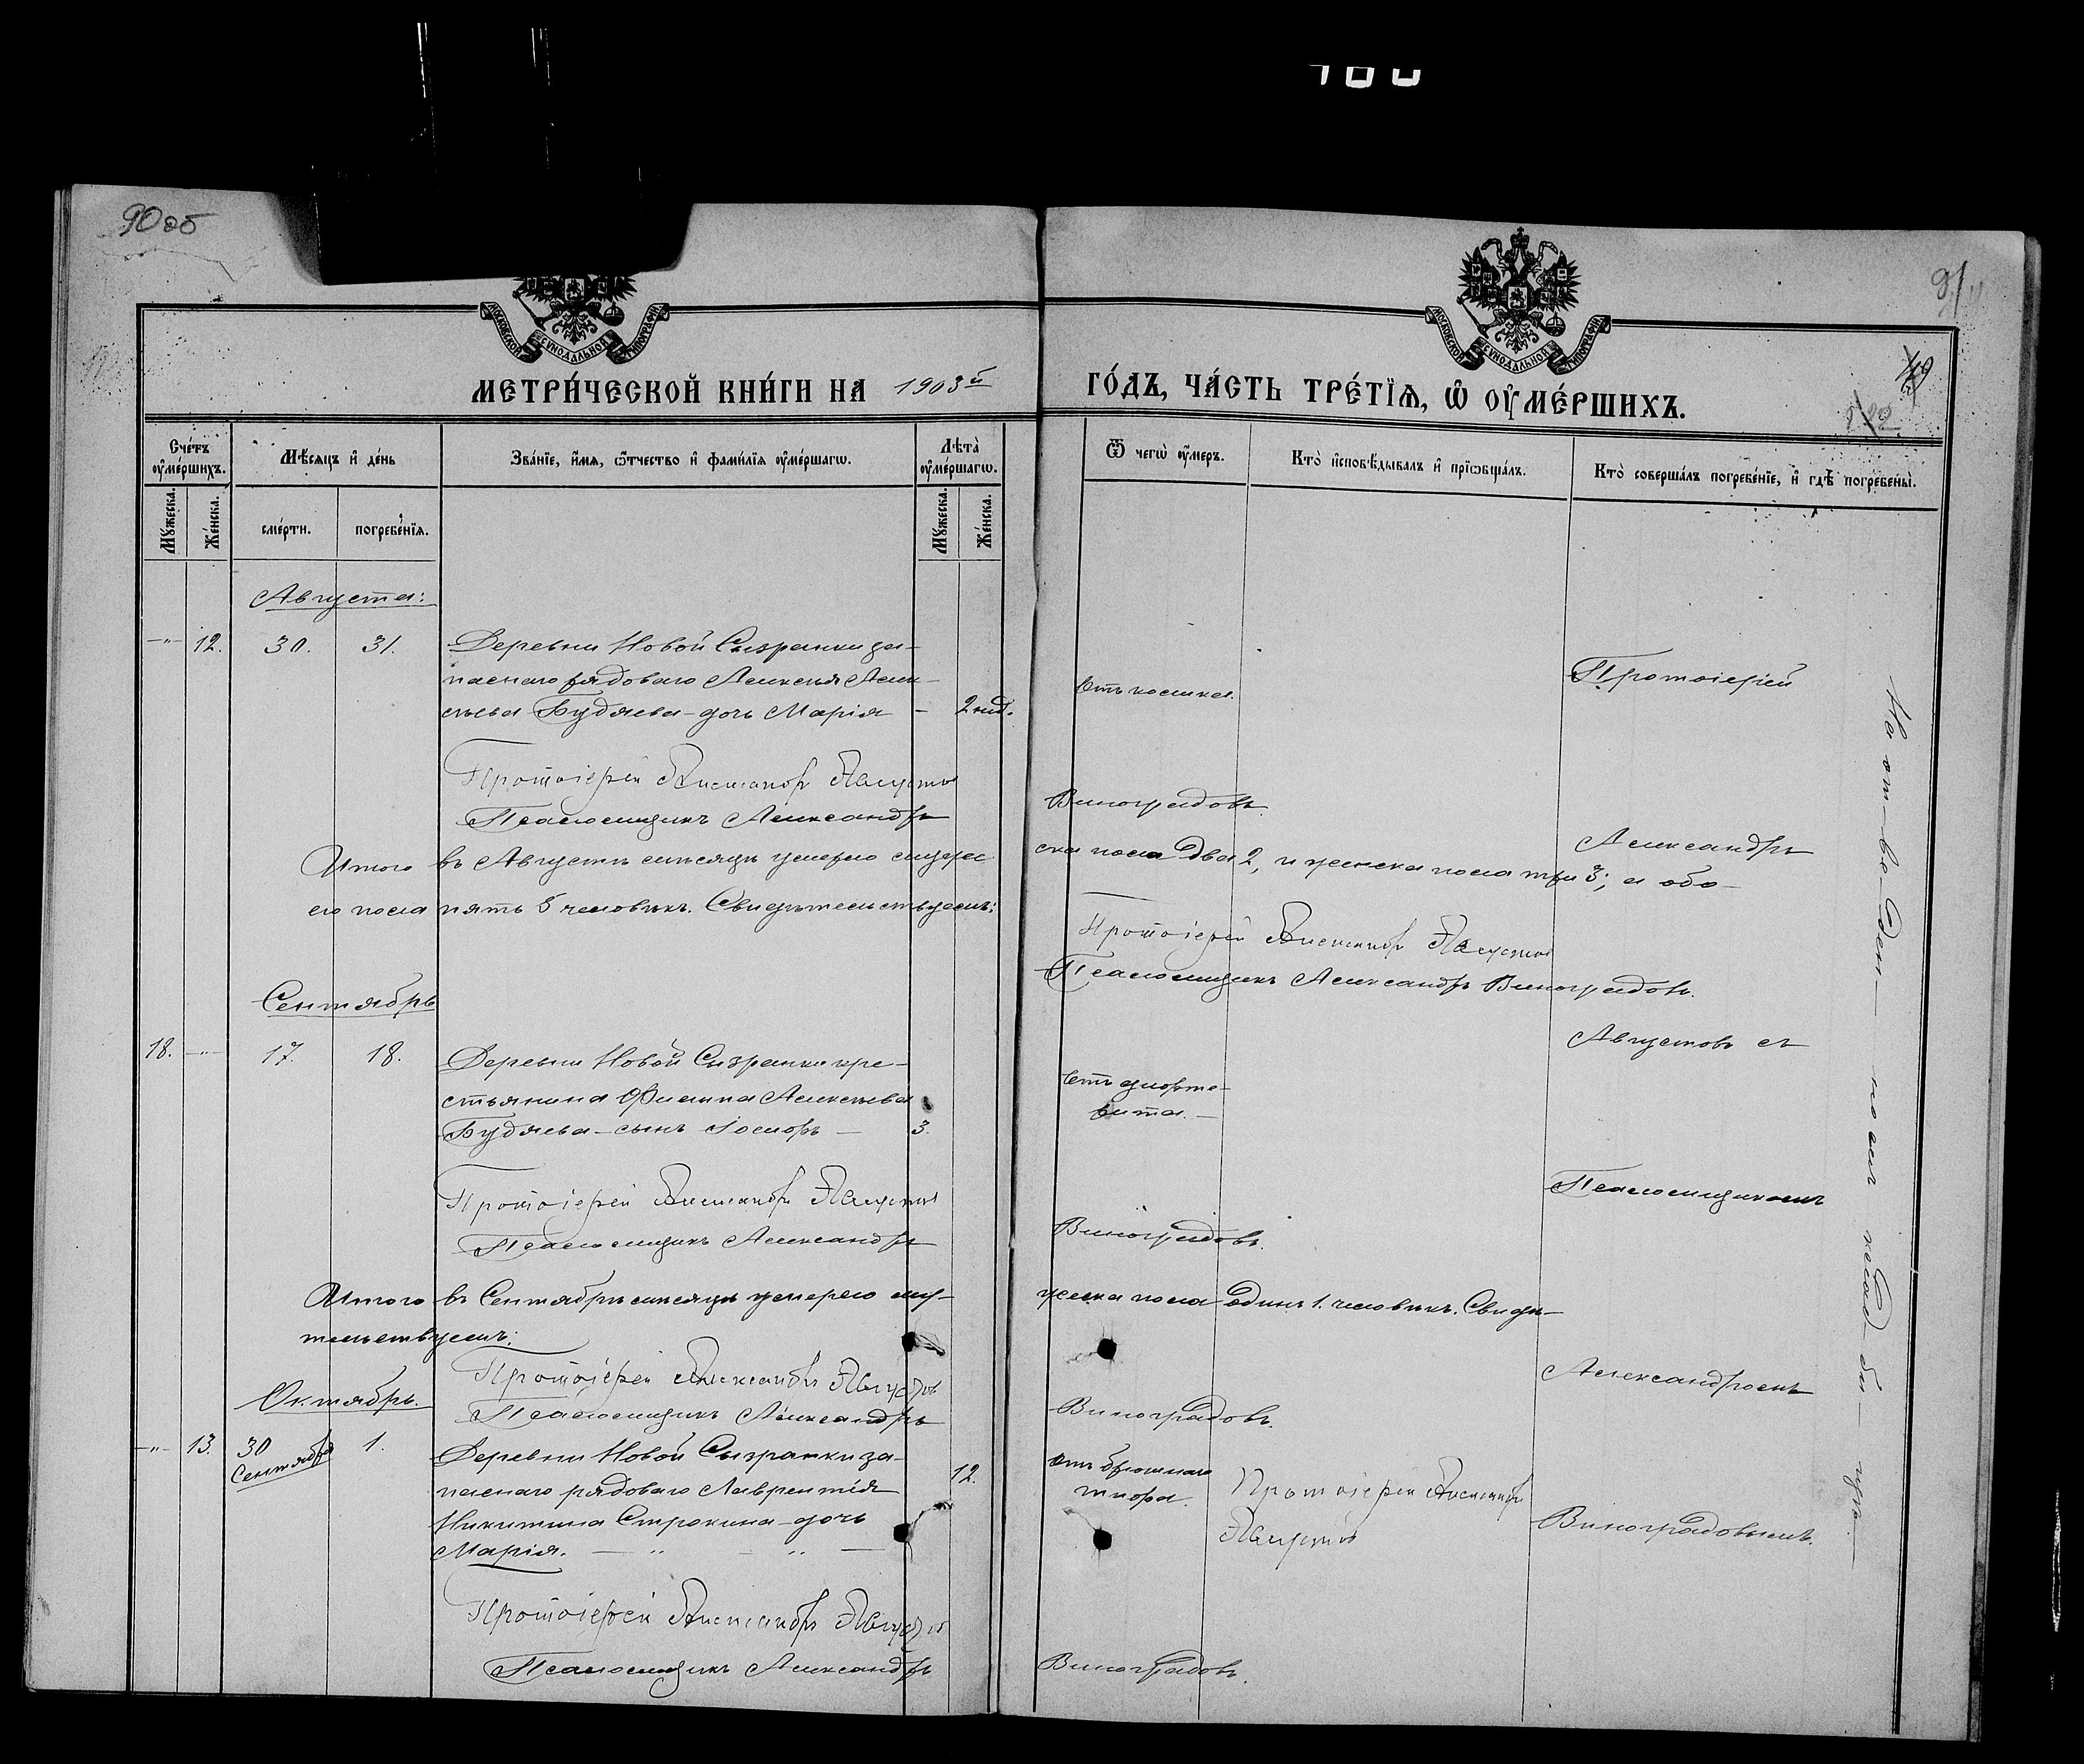 90об
91
МОСКОВСКОЙ СѴНОДАЛЬНОЙ ТИПОГРАФІИ
МОСКОВСКОЙ СѴНОДАЛЬНОЙ ТИПОГРАФІИ
МЕТРИ́ЧЕСКОЙ КНИ́ГИ НА 1903й
ГО́ДЪ, ЧА́СТЬ ТРЕ́ТЇѦ, Ѽ ОУ҆МЕ́РШИХЪ.
Сче́тъ оу҆ме́ршихъ.
Мꙋжеска.
Же́нска.
Мѣ́сѧцъ и҆ де́нь
сме́рти.
погребе́нїѧ.
Зва́нїе, и҆́мѧ, ѻ҆́тчество и҆ фами́лїѧ оу҆ме́ршагѡ.
Лѣ́та оу҆ме́ршагѡ.
Мꙋжеска.
Же́нска.
Ѿ чегѡ̀ оу҆́меръ.
Кто̀ и҆сповѣ́дывалъ и҆ прїѡбща́лъ.
Кто̀ соверша́лъ погребе́нїе, и҆ гдѣ̀ погребены̀.
Августа:
-"- 12. 30. 31. Деревни Новой Сызранки за-
паснаго рядоваго Алексѣя Алек-
сѣева Будяева - дочь Марія - 2 нед.
Отъ кашля.
Протоіерей
Протоіерей Александръ Августовъ
Псаломщикъ Александръ Виноградовъ.
Александръ
Итого въ Августѣ мѣсяцѣ умерло мужес
ска пола два 2, и женска пола три 3; а обо-
его пола пять 5 человѣкъ. Свидѣтельствуемъ:
Протоіерей Александръ Августовъ
Псаломщикъ Александръ Виноградовъ.
Сентябрь
Августовъ съ
18. -"- 17. 18. Деревни Новой Сызранки кре-
стьянина Филиппа Алексѣева
Будяева - сынъ - 3.
Отъ
Псаломщикомъ
Протоіерей Александръ Августовъ
Псаломщикъ Александръ Виноградовъ.
Итого въ Сентябрѣ мѣсяцѣ умерло му-
жеска пола одинъ 1. человѣкъ. Свидѣ-
тельствуемъ:
Протоіерей Александръ Августовъ
Псаломщикъ Александръ Виноградовъ.
Александромъ
Октябрь.
-"- 13. 30 Сентября 1. Деревни Новой Сызранки за-
паснаго рядоваго Лаврентія
Никитина Строкина - дочь
Марія. - " - " - 12.
отъ брюшнаго
тифа.
Протоіерей Александръ
Августовъ
Виноградовымъ.
Протоіерей Александръ Августовъ
Псаломщикъ Александръ Виноградовъ.